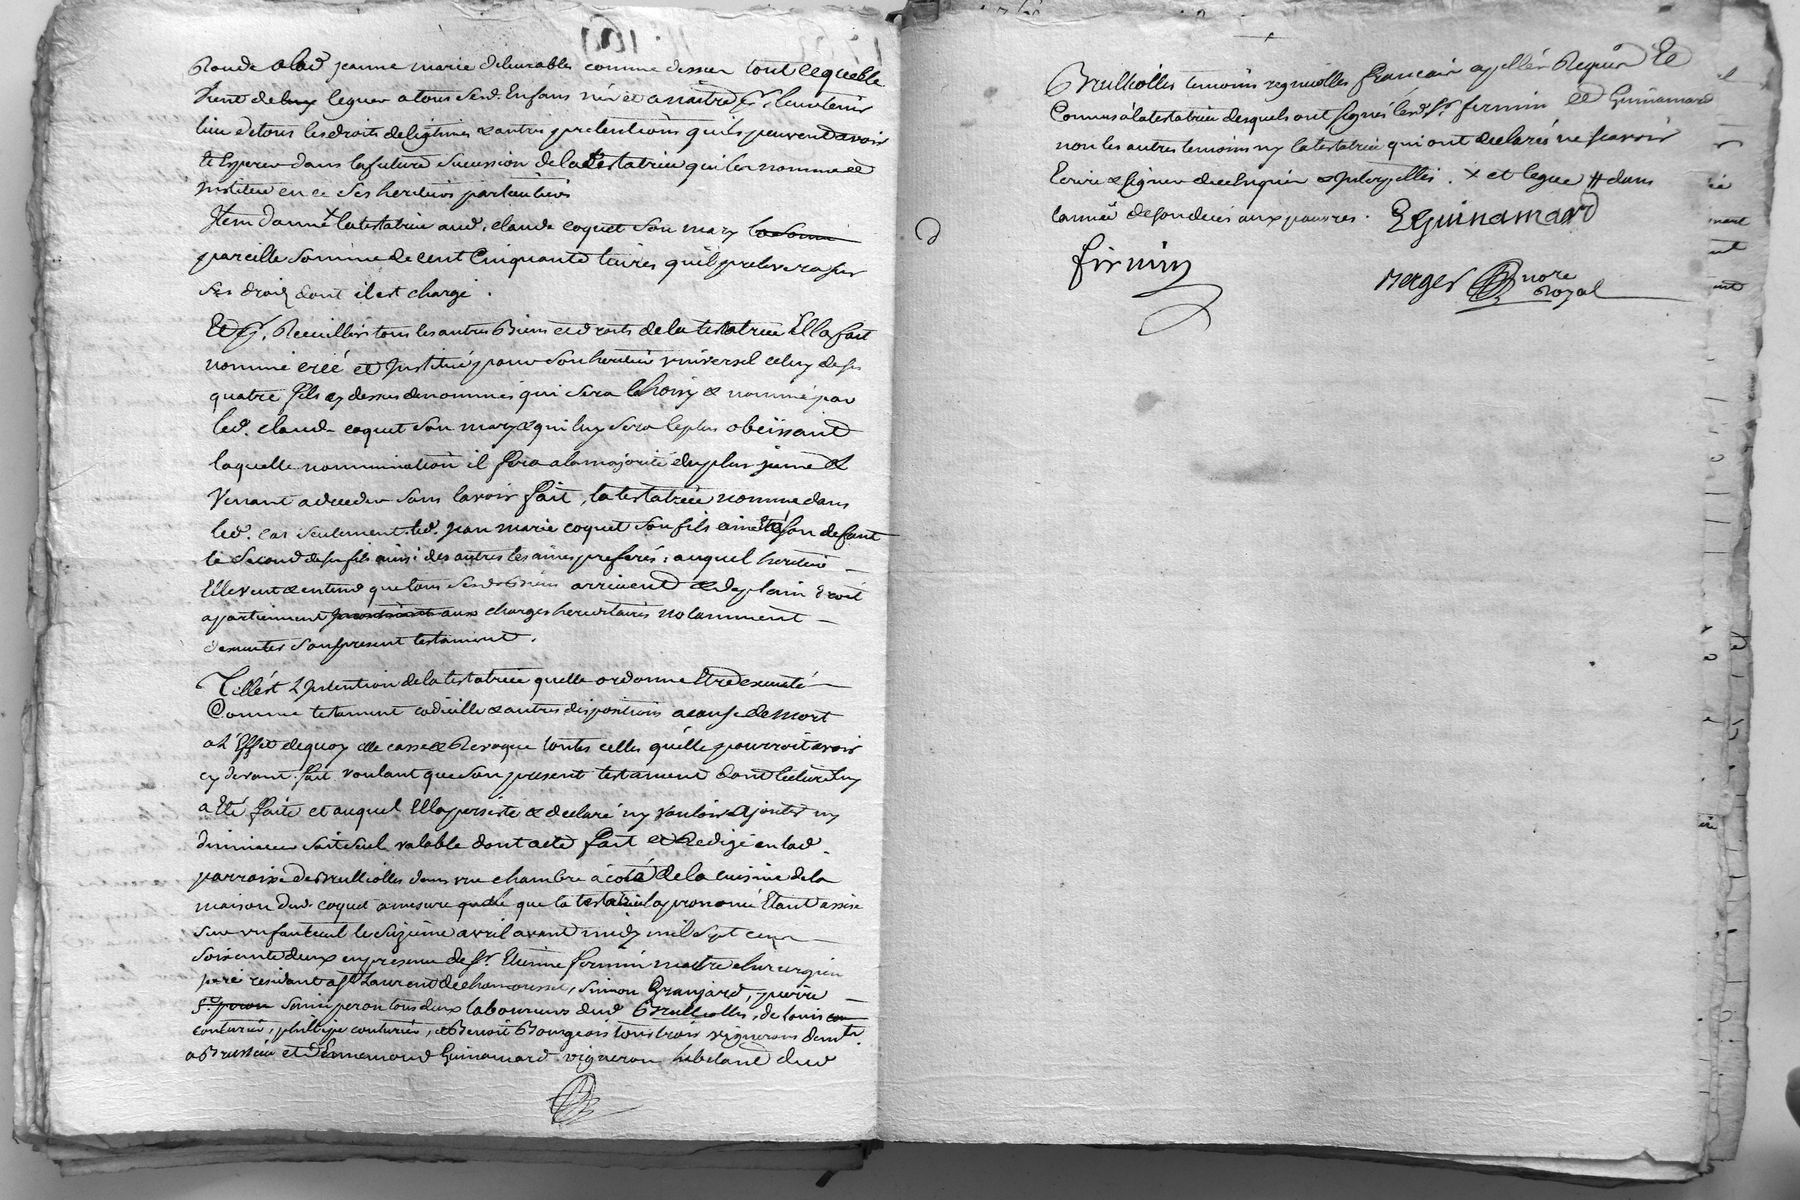 Ronde a lad. jeanne marie delivrables comme dessus tout lequelle
vient de leguer a tous sesd. Enfans nés et a naitre pr. leur tenir
lieu de tous les droits de legitimes & autres pretentions quils peuvent avoir
& Esperer dans la future sucession de la testatrice qui les nomme et
institue en ce ses heritiers particuliers
Item donne × la testatrice aud. claude coquet son mary la somme
pareille somme de cent Cinquante livres qu'il prelevera sur
ses droits dont il est chargé .
Et pr. Recuillir tous les autres Biens et droits de la testatrice Ella fait
nommé créé et institué pour son heritier universel celuy de ses
quatre fils cy dessus denommés qui sera Choisy & nommé par
led. claude coquet son mary & qui luy sera le plus obeissant
laquelle nommination il fera a la majorité du plus jeune &
Venant a deceder sans lavoir fait, la testatrice nomme dans
led. cas seulement led. jean marie coquet son fils ainé & a son defaut
le second de ses fils ainsi des autres les ainés preferés : auquel heritier
Elle veut & entend que tous sesd. Biens arrivent & de plain droit
apartiennent aux charges hereditaires notamment
dexecuter son present testament .
Telle est L'intention de la testatrice quelle ordonne Etre executé
Comme testament codicille & autres dispositions a cause de Mort
a L'Effet dequoy elle casse & Revoque toutes celles qu'elle pourroit avoir
cy devant fait voulant que son present testament dont lecture luy
a Eté faite et auquel Ella persiste & declaré ny vouloir Ajouter ny
diminuer soit seul valable dont acte fait et Redigé en lad.
parroisse de Brulliolles dans une chambre a coté de la cuisine de la
maison dud. coquet a mesure que la testatrice la prononcé Etant assise
sur un fauteuil le seizième avril avant midy mil sept cent
soixante deux en presence de sr. Etienne fermin maitre chirurgien
juré residant a st. Laurent de chamousset, simon Granjard, pierre
st. peron saint peron tous deux laboureurs dud. Brulliolles, de louis
couturier, philippe couturier, & Benoit Bourgeois tous trois vignerons demts.
a Brussieu et d'Ennemond Guinamard vigneron habitant dud
Brulliolles temoins regnicolles francais apellés Requis Et
Connus a la testatrice desquels ont signés lesd. srs. fermin et Guinamard
non les autres temoins ny la testatrice qui ont declarés ne scavoir
Ecrire & signer de ce Enquis & interpellés . × et legue # dans
lannée de son decés aux pauvres .
EGuinamard
firmin
Berger nore
Royal